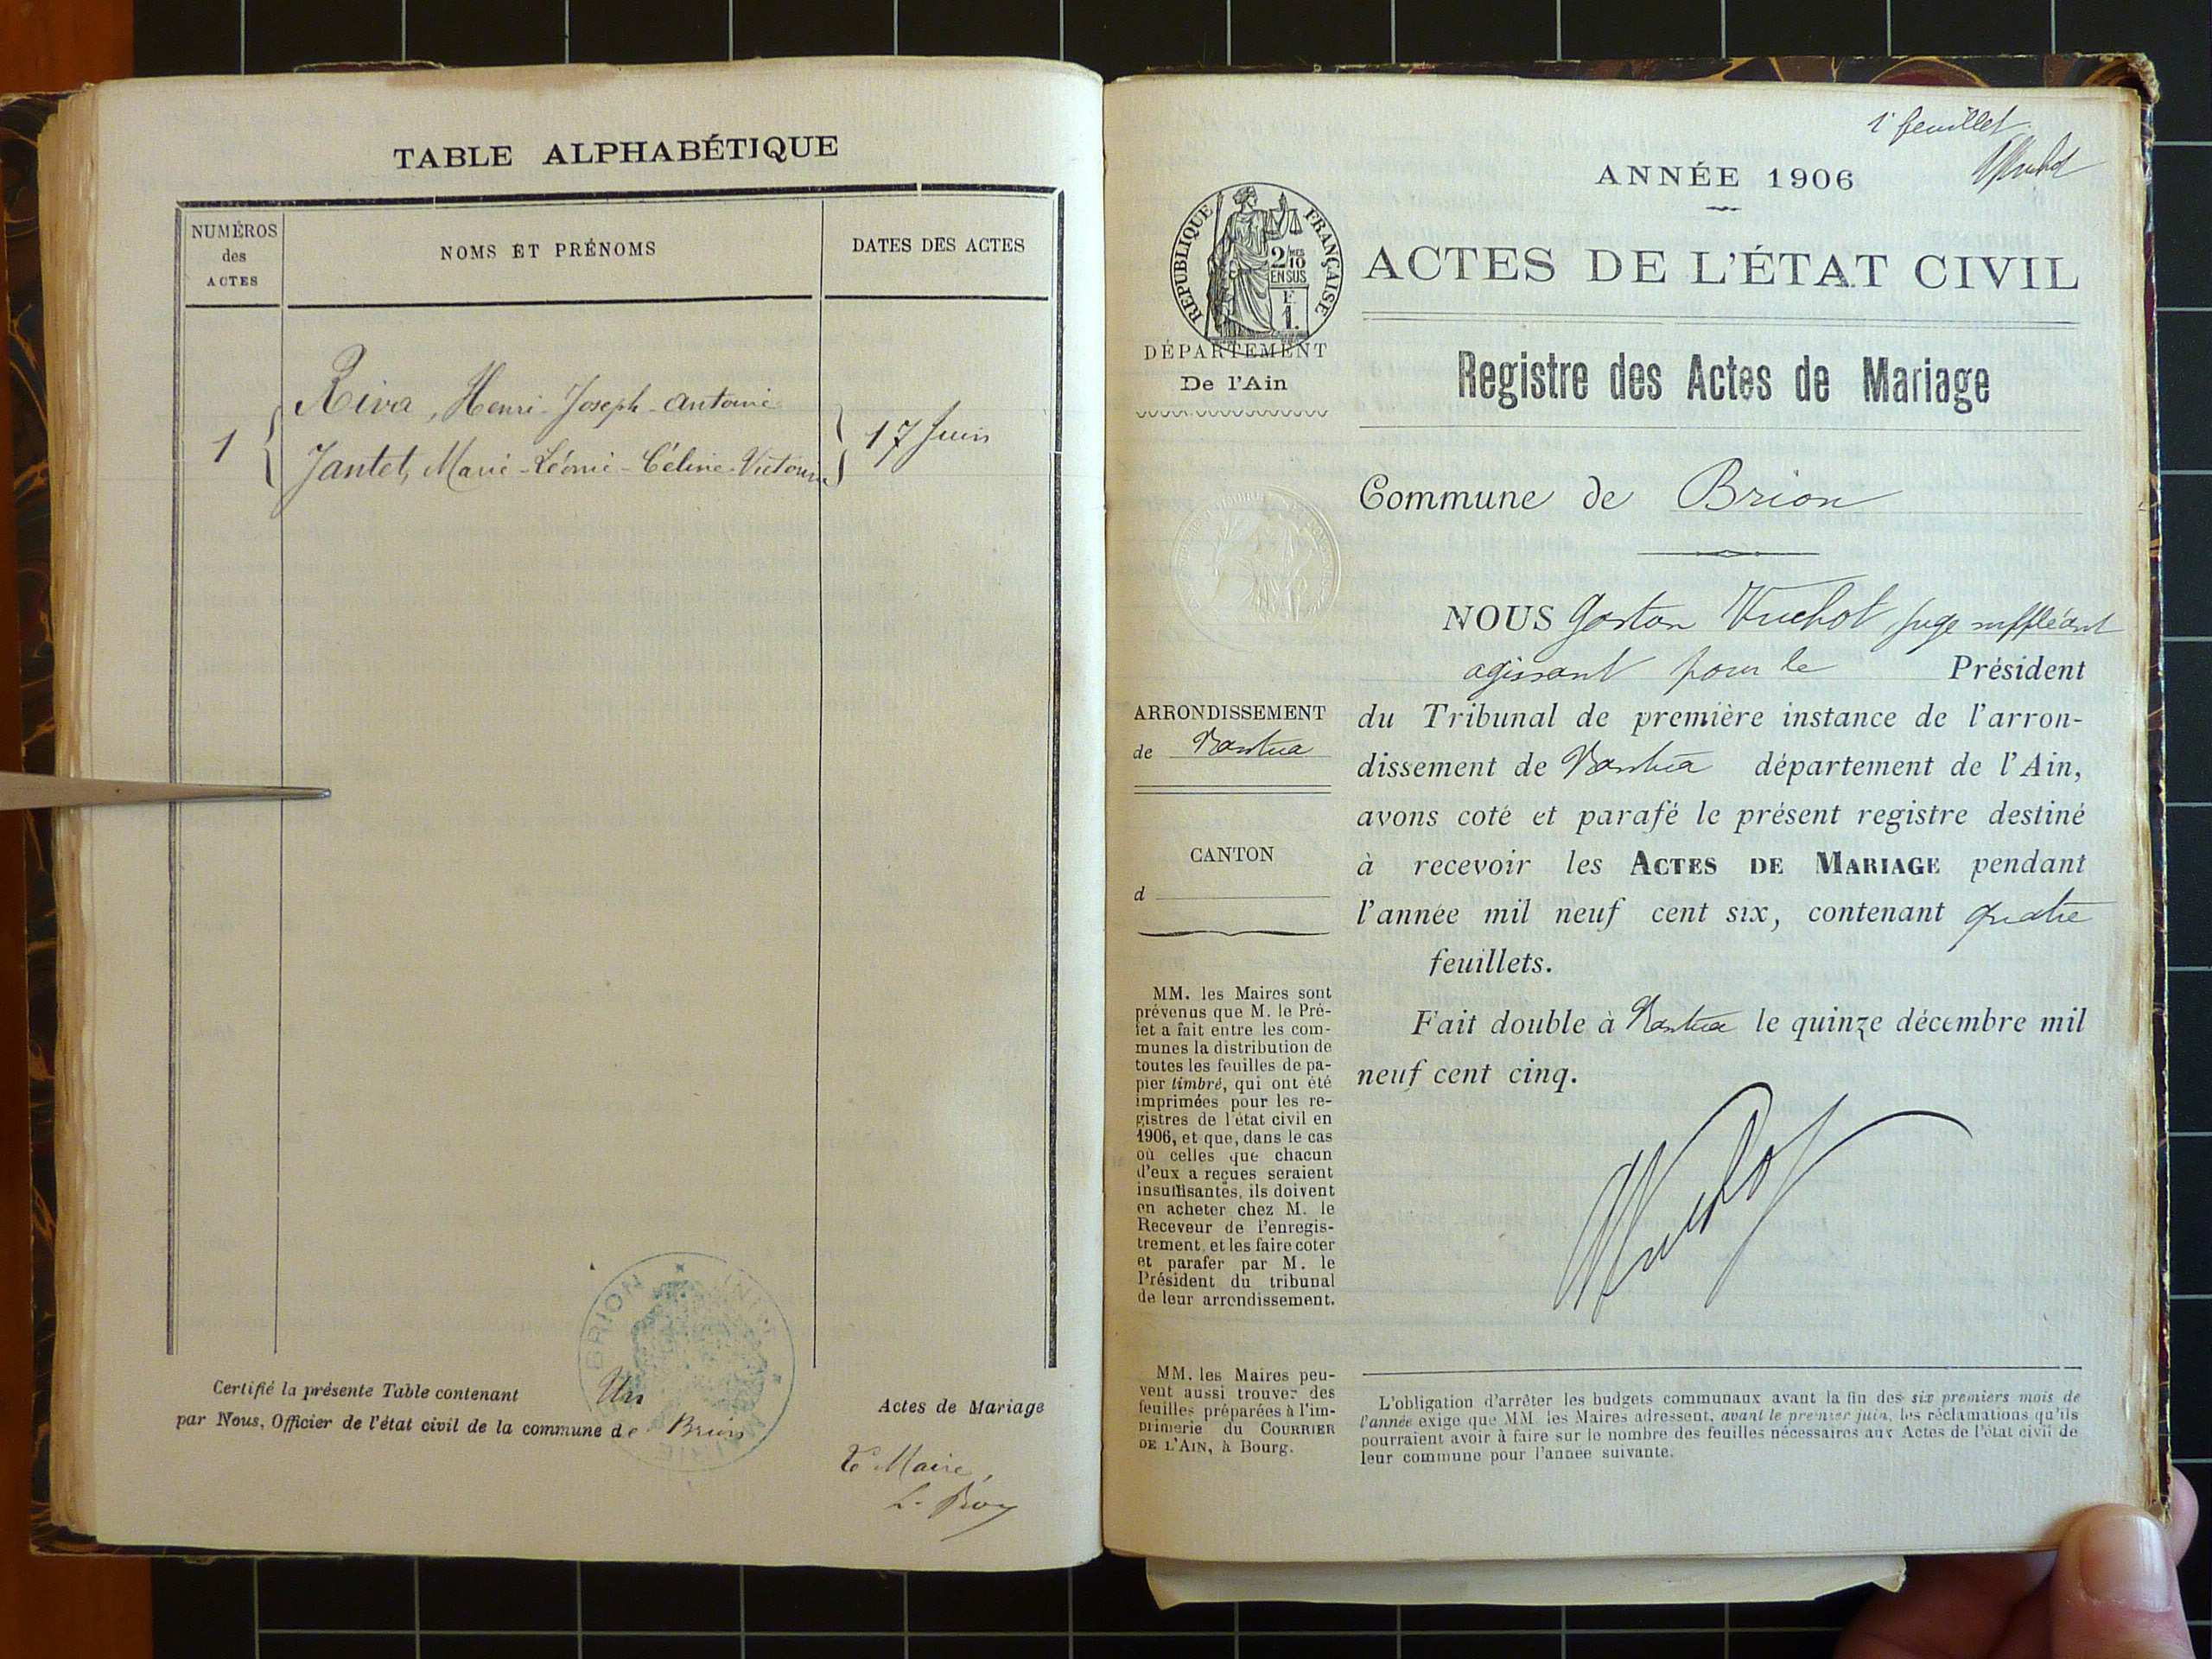 TABLE ALPHABÉTIQUE
NUMÉROS
des
ACTES
NOMS ET PRÉNOMS
DATES DES ACTES
1
Riva, Henri-Joseph-Antoine
Jantet, Marie-Léonie-Céline-Victorine
17 Juin
BRION
MAIRIE
Certifié la présente Table contenant Un Actes de Mariage
par Nous, Officier de l'état civil de la commune de Brion
Le Maire,
1r feuillet
ANNÉE 1906
RÉPUBLIQUE FRANÇAISE
2/10MES
EN SUS
F.
1.
ACTES DE L'ÉTAT CIVIL
DÉPARTEMENT
De l'Ain
Registre des Actes de Mariage
Commune de Brion
NOUS Gaston Vuchot, juge suppléant
agissant pour le Président
du Tribunal de première instance de l'arron-
dissement de Nantua département de l'Ain,
avons coté et parafé le présent registre destiné
à recevoir les ACTES DE MARIAGE pendant
l'année mil neuf cent six, contenant quatre
feuillets.
Fait double à Nantua le quinze décembre mil
neuf cent cinq.
ARRONDISSEMENT
de Nantua
CANTON
d
MM. les Maires sont
prévenus que M. le Pré-
fet a fait entre les com-
munes la distribution de
toutes les feuilles de pa-
pier timbré, qui ont été
imprimées pour les re-
gistres de l'état civil en
1906, et que, dans le cas
où celles que chacun
d'eux a reçues seraient
insuffisantes, ils doivent
en acheter chez M. le
Receveur de l'enregis-
trement, et les faire coter
et parafer par M. le
Président du tribunal
de leur arrondissement.
MM. les Maires peu-
vent aussi trouver des
feuilles préparées à l'im-
primerie du COURRIER
DE L'AIN, à Bourg.
L'obligation d'arrêter les budgets communaux avant la fin des six premiers mois de
l'année exige que MM. les Maires adressent, avant le premier juin, les réclamations qu'ils
pourraient avoir à faire sur le nombre des feuilles nécessaires aux Actes de l'état civil de
leur commune pour l'année suivante.